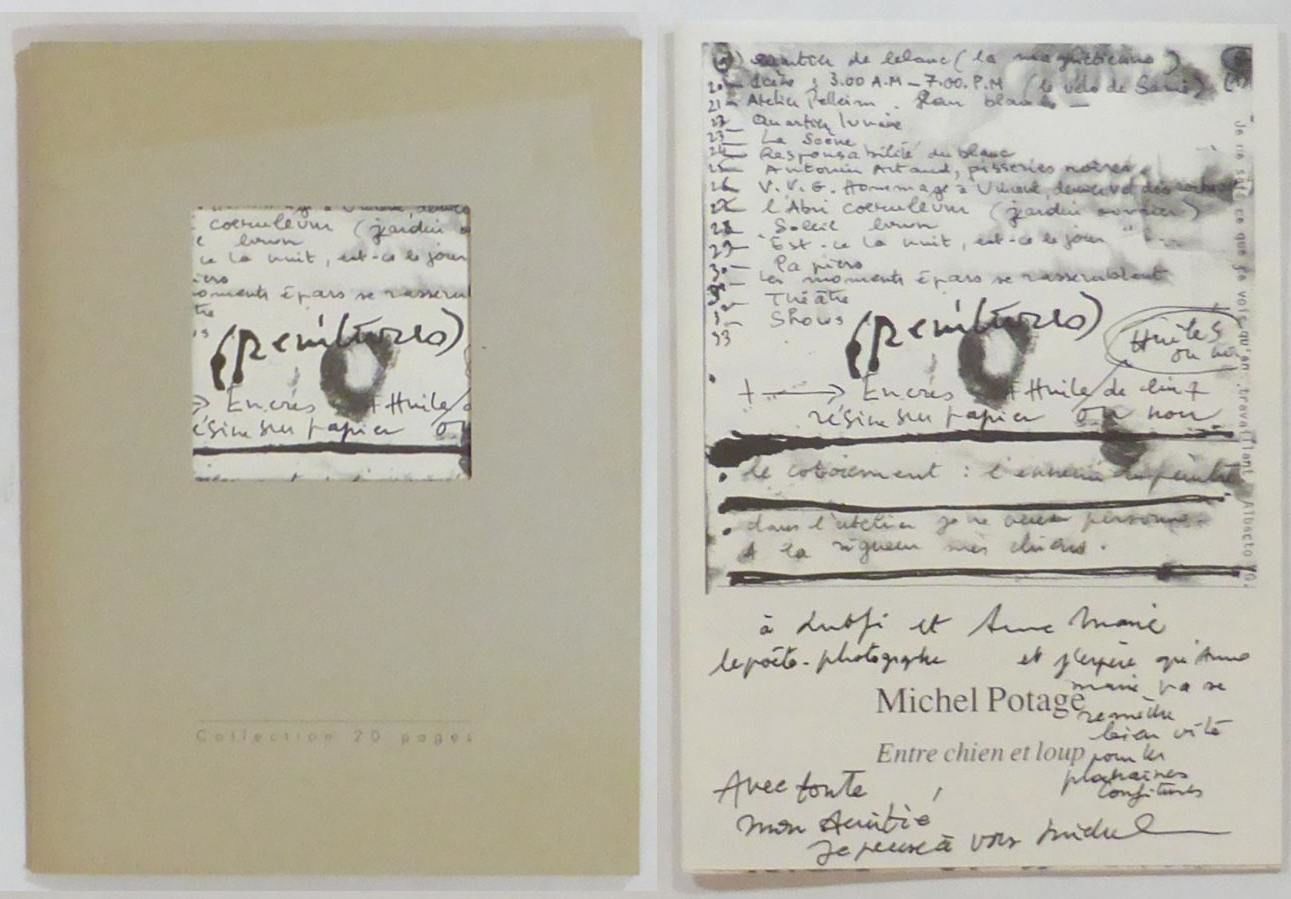 coeruleum (jardin
ce la nuit, est-ce le jour
moments épars se rassem
(peintures)
Encres + Huile
résine sur papier
Collection 20 pages
quartier de leblanc (la magicienne)
3.00 A.M – 7.00. P.M (le vélo de
21 – Atelier
22 – Quartier lunaire
23 – La Scène
24 – Responsabilité du blanc
25 – Antonin Artaud, pisseries noires
26 – V.V.G. Hommage à
27 – l'Abri coeruleum (jardin ouvrier)
28 – Soleil brun
29 – Est-ce la nuit, est-ce le jour
30 – Papiers
Les moments épars se rassemblent
Théâtre
33 Shows
(peintures)
Huiles
ou
+ → Encres + Huile de lin +
résine sur papier ou non
le cotoiement : l'ennemi du peintre
dans l'atelier je ne veux personne.
A la rigueur mes chiens.
Je ne sais ce que je vois qu'en travaillant
à Lutfi et Anne Marie
le poète-photographe
et j'espère qu'Anne
marie va se
remettre
bien vite
pour les
prochaines
confitures
Michel Potage
Entre chien et loup
Avec toute
mon Amitié
Je pense à vous Michel